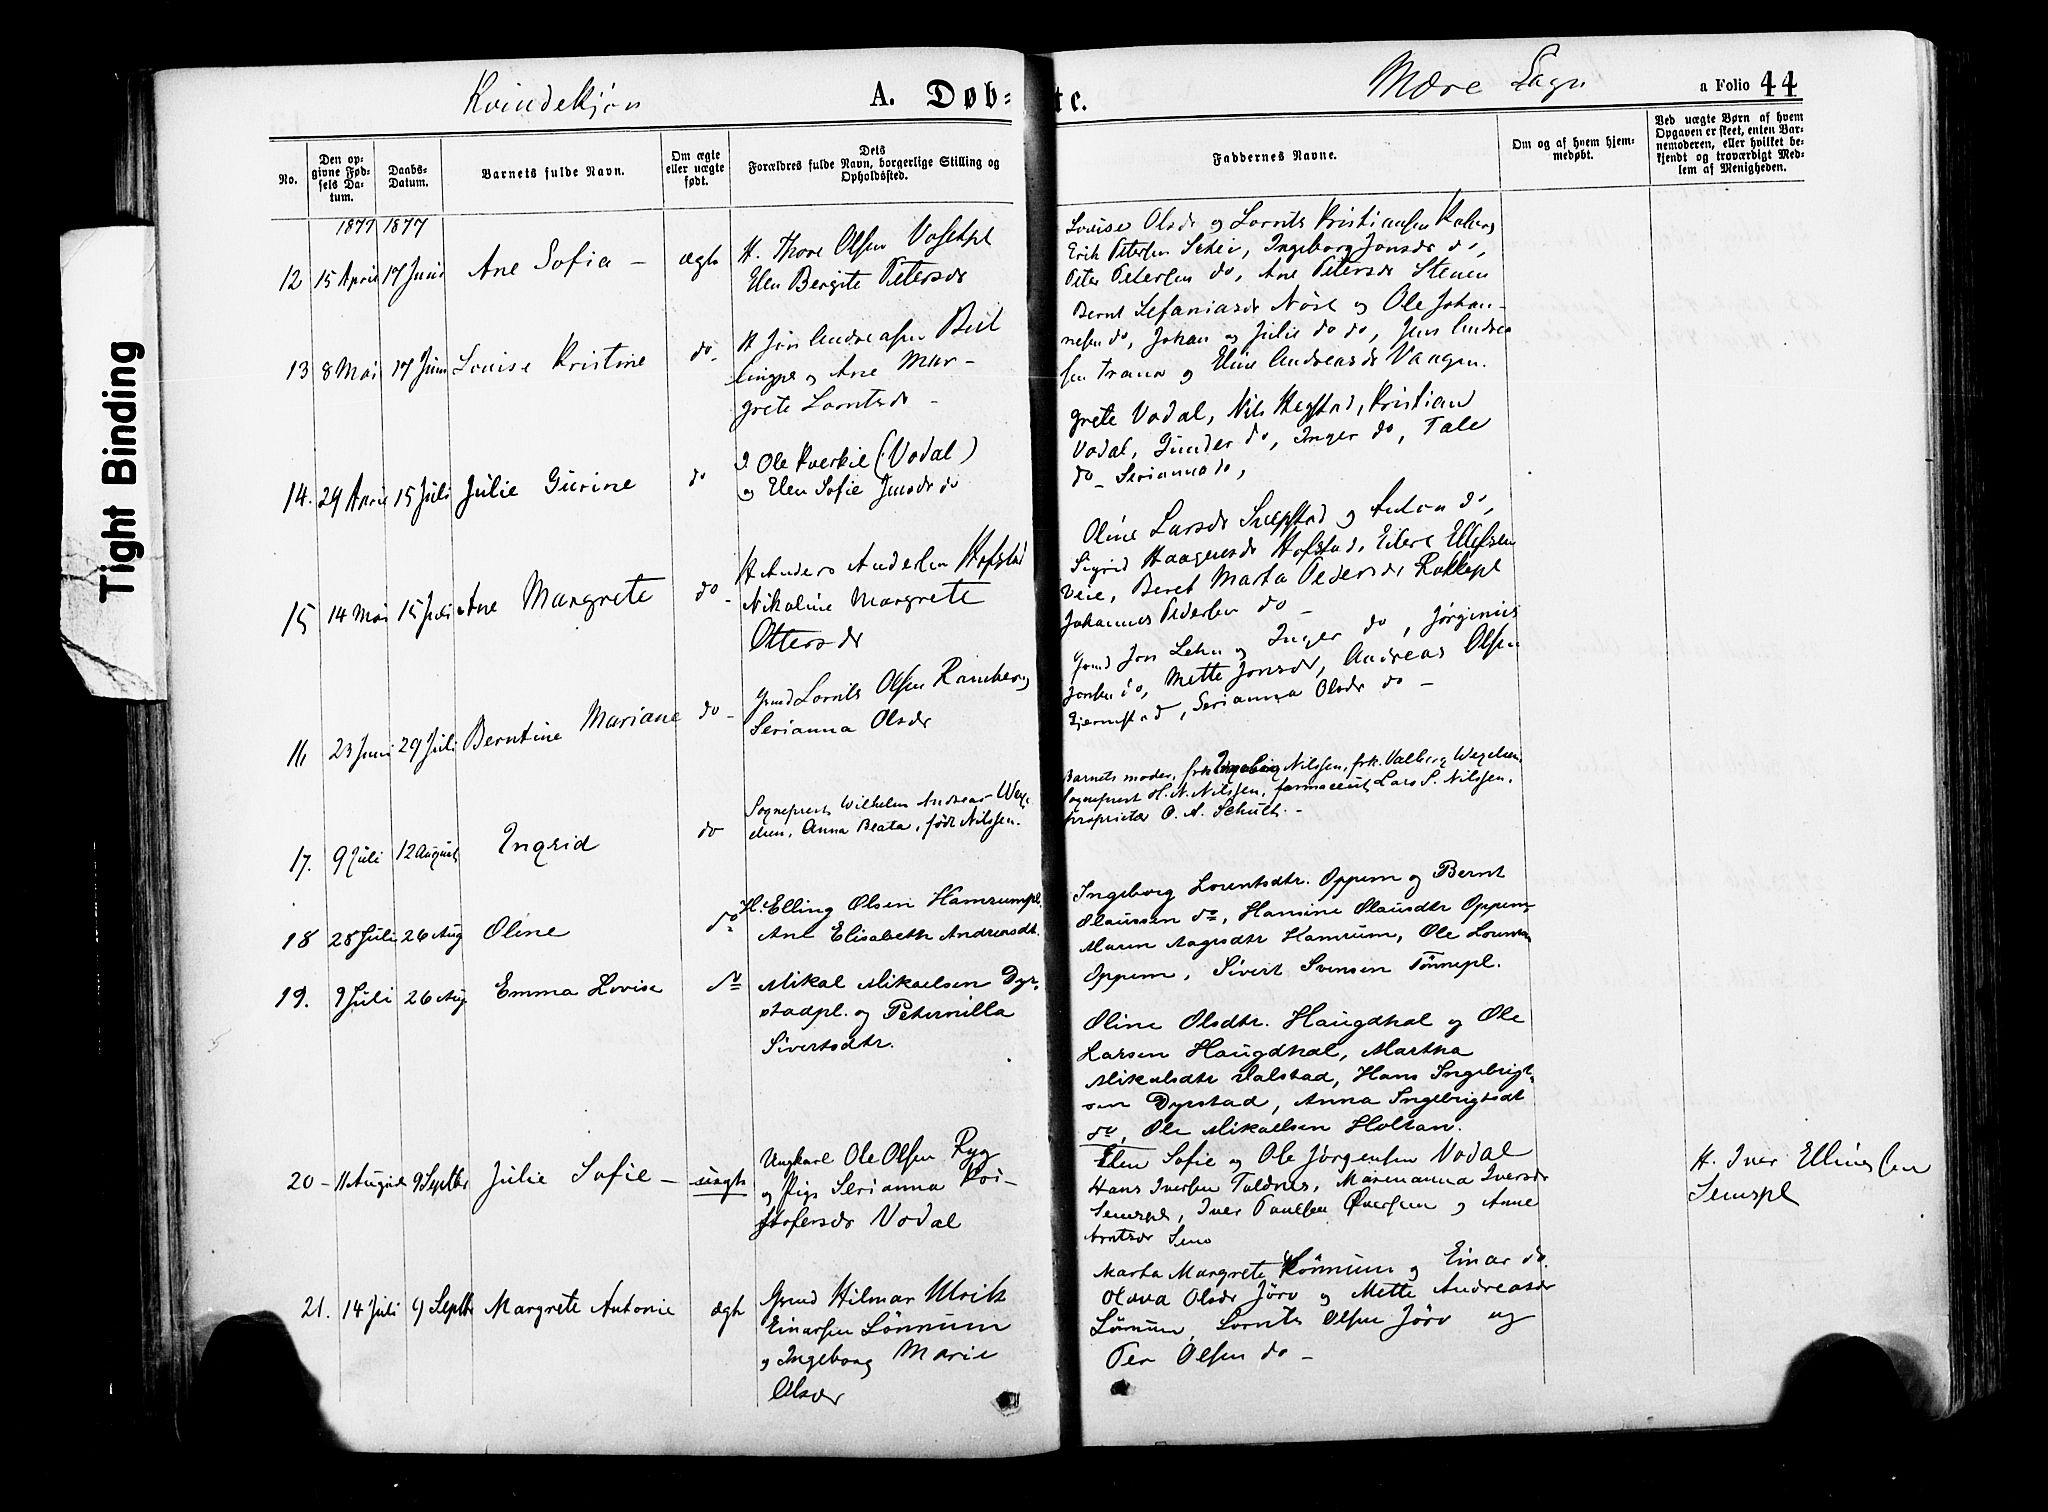 Kvindekjøn
A. Døb=
te.
Mære Sogn
a Folio 44
No.
Den opgivne Fødsels Datum.
Daabs-Datum.
Barnets fulde Navn.
Om ægte eller uægte født.
Dets Forældres fulde Navn, borgerlige Stilling og Opholdssted.
Faddernes Navne.
Om og af hvem hjemmedøbt.
Ved uægte Børn af hvem Opgaven er skeet, enten Barnemoderen, eller hvilket bekjendt og troværdigt Medlem af Menigheden.
1877 1877
12 15 April 17 Juni Ane Sofia – ægte
H. Thore Olsen
Elen Bergite Petersdr
Louise Olsdr og Lornts Kristiansen
Erik Petersen Schei, Ingeborg Jonsdr do,
Peter Petersen do, Ane Petersdr Stenen
13 8 Mai 17 Juni Louise Kristine do
H Jon Andreasen Beit
lingpl og Ane Mar–
grete Lorntsdr –
Bernt Sefaniasdr Nøst og Ole Johan–
nesen do, Johan og Julie do do, Jens Andrea
sen Trana og Eline Andreasdr Vaagen.
14. 29 April 15 Juli Julie Gurine do
Ole Kverkil (Vodal)
og Elen Sofie Jensdr do
Grete Vodal, Nils Hegstad, Kristian
Vodal, Gunder do, Inger do, Tale
do – Serianna do,
15 14 Mai 15 Juli Ane Margrete do –
H Anders Andersen Hofstad
Nikoline Margrete
Ottersdr
Oline Larsdr Snepstad og Anton do,
Sigrid Haagensdr Hofstad, Eilert Ellefsen
Veie, Beret Marta Pedersdr Rokkepl
Johannes Pedersen do –
16 23 Juni 29 Juli Berntine Mariane do –
Grmd Lornts Olsen Ramberg
Serianna Olsdr
Grmd Jon Lehn og Inger do, Jørginus
Jonsen do, Mette Jonsdr, Andreas Olsen
Gjermstad, Serianna Olsdr do –
17. 9 Juli 12 August Ingrid do
Sogneprest Wilhelm Andreas Wex–
elsen, Anna Beata, født Nilssen.
Barnets moder, frk Ingeborg Nilssen, frk. Valborg Wexelsen,
Sogneprest H. N. Nilssen, farmaceut Lars S. Nilssen,
proprietær O. A. Schult. –
18 28 Juli 26 Aug Oline do
H. Elling Olsen Hamrumpl.
Ane Elisabeth Andreasdt.
Ingeborg Lorentsdtr. Oppem og Bernt
Olaussen do, Hansine Olausdtr Oppem,
Maren Aagesdtr Hamrum, Ole Lorentsen
Oppem, Sivert Svensen Tønnepl.
19. 9 Juli 26 Aug. Emma Lovise do
Mikal Mikaelsen Dyr–
stadpl. og Peternilla
Sivertsdtr.
Oline Olsdtr. Haugdhal og Ole
Larsen Haugdhal, Martha
Mikalsdtr Dalstad, Hans Ingebrigt–
sen Dyrstad, Anna Ingebrigtsdt
do, Ole Mikaelsen Holtan.
20 – 11 August 9 Septbr Julie Sofie – uægte
Ungkarl Ole Olsen Ryg
og Pige Serianna Kri–
stofersdr Vodal
Elen Sofie og Ole Jørgensen Vodal
Hans Iversen Toldnes, Marenanna Iversdr
Semspl, Iver Paulsen og Anne
Arntsdr Sem
H. Iver Ellingsen
Semspl
21. 14 Juli 9 Septbr Margrete Antonie ægte
Grmd Hilmar Ulrik
Einarsen Lønnum
og Ingeborg Marie
Olsdr
Marta Margrete Lønnum og Einar do.
Olava Olsdr Jørv og Mette Andreasdr
Lønnum, Lornts Olsen Jørv og
Per Olsen do –
Tight Binding